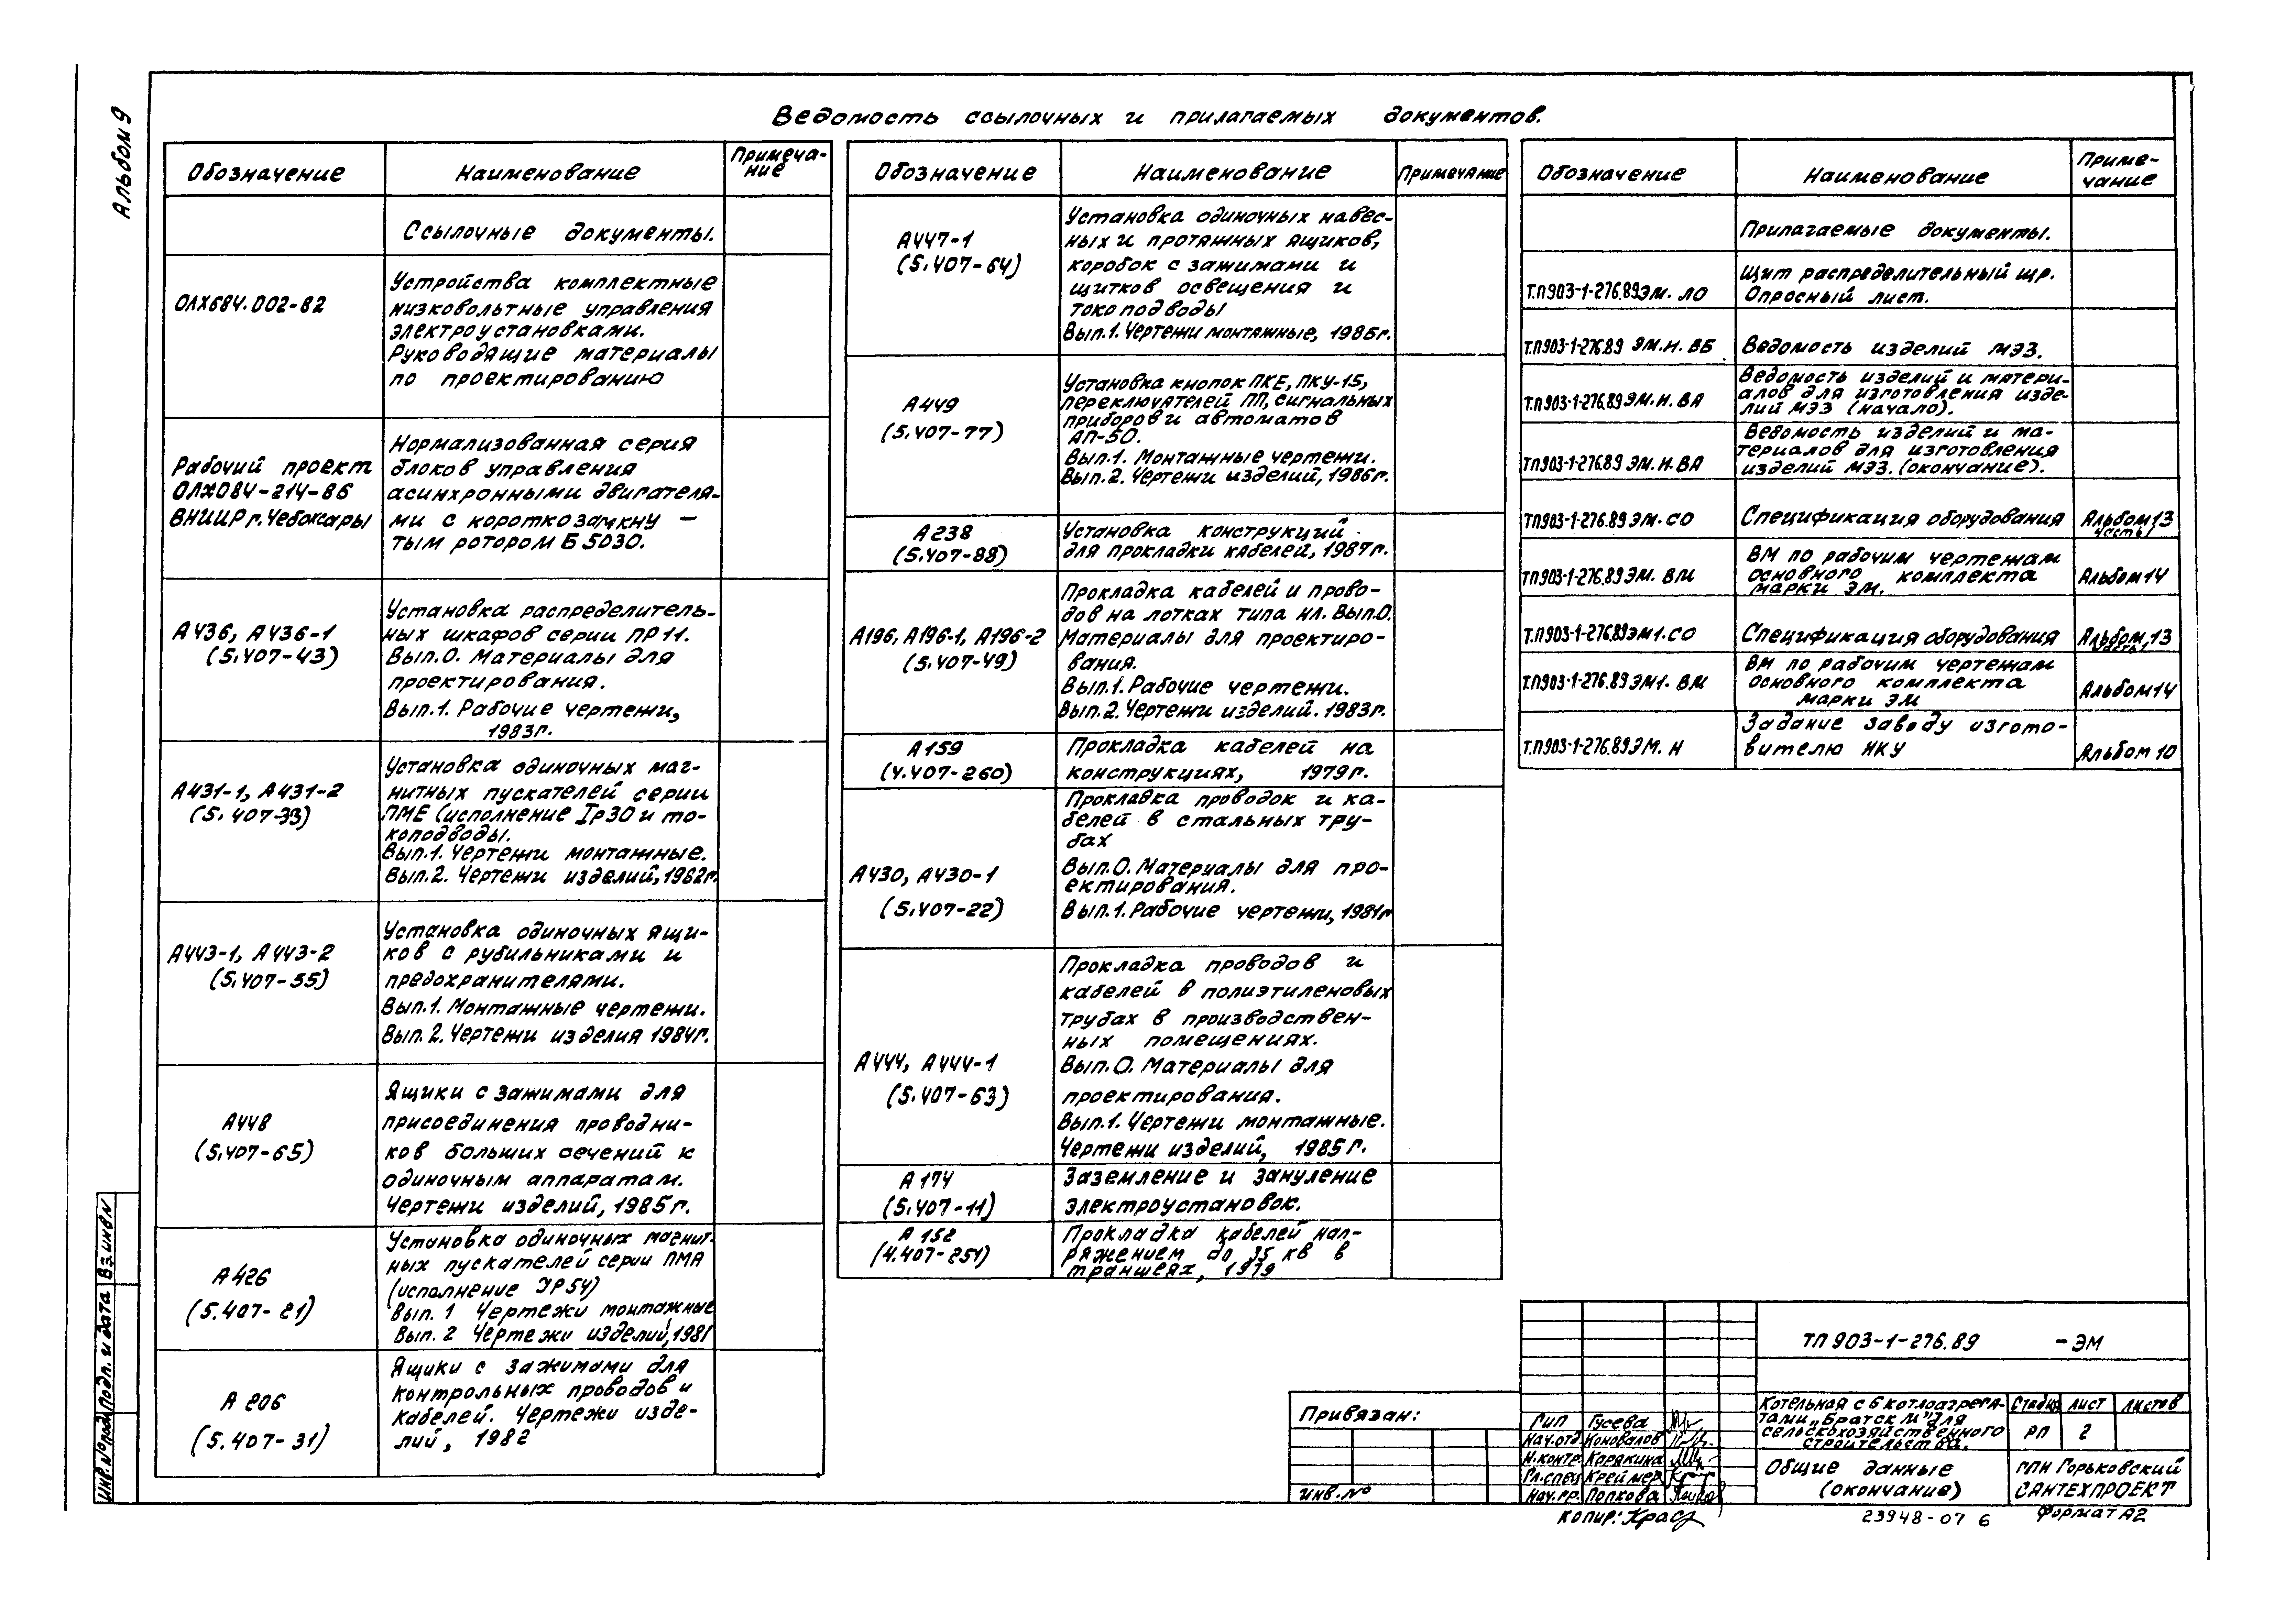 Альбом 9
Ведомость ссылочных и прилагаемых документов.
Обозначение
Наименование
Примеча-
ние
Ссылочные документы.
ОЛХ684.002-82
Устройства комплектные
низковольтные управления
электроустановками.
Руководящие материалы
по проектированию
Рабочий проект
ОЛХ084-214-86
ВНИИР г. Чебоксары
Нормализованная серия
блоков управления
асинхронными двигателя-
ми с короткозамкну-
тым ротором Б5030.
А436, А436-1
(5.407-43)
Установка распределитель-
ных шкафов серии ПР11.
Вып.0. Материалы для
проектирования.
Вып.1. Рабочие чертежи,
1983г.
А431-1, А431-2
(5.407-33)
Установка одиночных маг-
нитных пускателей серии
ПМЕ (исполнение Iр30 и то-
коподводы.
Вып.1. Чертежи монтажные.
Вып.2. Чертежи изделий, 1982г.
А443-1, А443-2
(5.407-55)
Установка одиночных ящи-
ков с рубильниками и
предохранителями.
Вып.1. Монтажные чертежи.
Вып.2. Чертежи изделия 1984г.
А448
(5.407-65)
Ящики с зажимами для
присоединения проводни-
ков больших сечений к
одиночным аппаратам.
Чертежи изделий, 1985г.
А426
(5.407-21)
Установка одиночных магнит-
ных пускателей серии ПМА
(исполнение УР54)
Вып. 1 Чертежи монтажные
Вып. 2 Чертежи изделий, 1981
А 206
(5.407-31)
Ящики с зажимами для
контрольных проводов и
кабелей. Чертежи изде-
лий, 1982
Обозначение
Наименование
Примечание
А447-1
(5.407-64)
Установка одиночных навес-
ных и протяжных ящиков,
коробок с зажимами и
щитков освещения и
токоподводы
Вып.1. Чертежи монтяжные, 1985г.
А449
(5.407-77)
Установка кнопок ПКЕ, ПКУ-15,
переключателей ПП, сигнальных
приборов и автоматов
АП-50.
Вып.1. Монтажные чертежи.
Вып.2. Чертежи изделий, 1986г.
А238
(5.407-88)
Установка конструкций
для прокладки кабелей, 1987г.
А196, А196-1, А196-2
(5.407-49)
Прокладка кабелей и прово-
дов на лотках типа нл. Вып.0.
Материалы для проектиро-
вания.
Вып.1. Рабочие чертежи.
Вып.2. Чертежи изделий. 1983г.
А159
(4.407-260)
Прокладка кабелей на
конструкциях, 1979г.
А430, А430-1
(5.407-22)
Прокладка проводок и ка-
белей в стальных тру-
бах
Вып.0. Материалы для про-
ектирования.
Вып.1. Рабочие чертежи, 1981г
А444, А444-1
(5.407-63)
Прокладка проводов и
кабелей в полиэтиленовых
трубах в производствен-
ных помещениях.
Вып.0. Материалы для
проектирования.
Вып.1. Чертежи монтажные.
Чертежи изделий, 1985г.
А174
(5.407-11)
Заземление и зануление
электроустановок.
А 152
(4.407-251)
Прокладка кабелей нап-
ряжением до 35 кв в
траншеях, 1979
Обозначение
Наименование
Приме-
чание
Прилагаемые документы.
Т.П903-1-276.89ЭМ. ЛО
Щит распределительный щр.
Опросный лист.
Т.П903-1-276.89 ЭМ.Н. ВБ
Ведомость изделий МЭЗ.
Т.П903-1-276.89 ЭМ.Н. ВА
Ведомость изделий и матери-
алов для изготовления изде-
лий МЭЗ (начало).
ТП903-1-276.89 ЭМ.Н. ВА
Ведомость изделий и ма-
териалов для изготовления
изделий МЭЗ. (окончание).
ТП903-1-276.89 ЭМ.СО
Спецификация оборудования
Альбом 13
часть 1
ТП903-1-276.89ЭМ. ВМ
ВМ по рабочим чертежам
основного комплекта
марки ЭМ.
Альбом 14
Т.П903-1-276.89ЭМ1.СО
Спецификация оборудования
Альбом 13
часть 1
Т.П903-1-276.89ЭМ1. ВМ
ВМ по рабочим чертежам
основного комплекта
марки ЭМ
Альбом 14
Т.П903-1-276.89ЭМ. Н
Задание заводу изгото-
вителю НКУ
Альбом 10
Инв.№ подл.
Подп. и дата
Вз.инв№
Привязан:
инв.№
ТП 903-1-276.89 -ЭМ
Гип Гусева
Нач.отд Коновалов
Н.контр. Корякина
Гл.спец Креймер
Нач.гр. Попкова
Котельная с 6 котлоагрега-
тами „Братск М" для
сельскохозяйственного
строительства.
Стадия лист листов
РП 2
Общие данные
(окончание)
ГПН Горьковский
САНТЕХПРОЕКТ
Копир:
23948-07 6
Формат А2